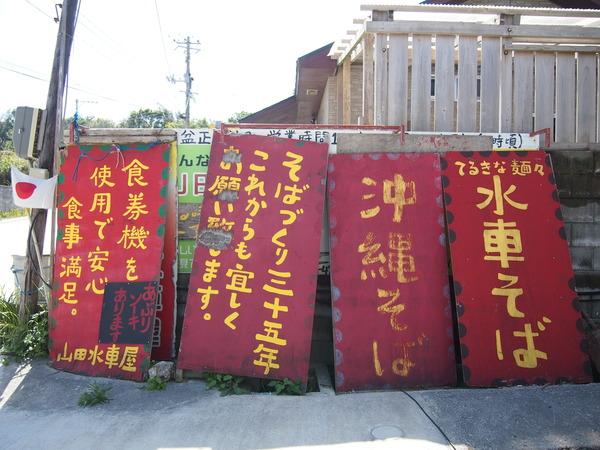 盆正
営業時間
時頃)
食券機を
使用で安心
食事満足。
あぶり
ソーキ
あります
山田水車屋
んな
そばづくり三十五年
これからも宜しく
お願い致します。
沖縄そば
てるきな麺々
水車そば